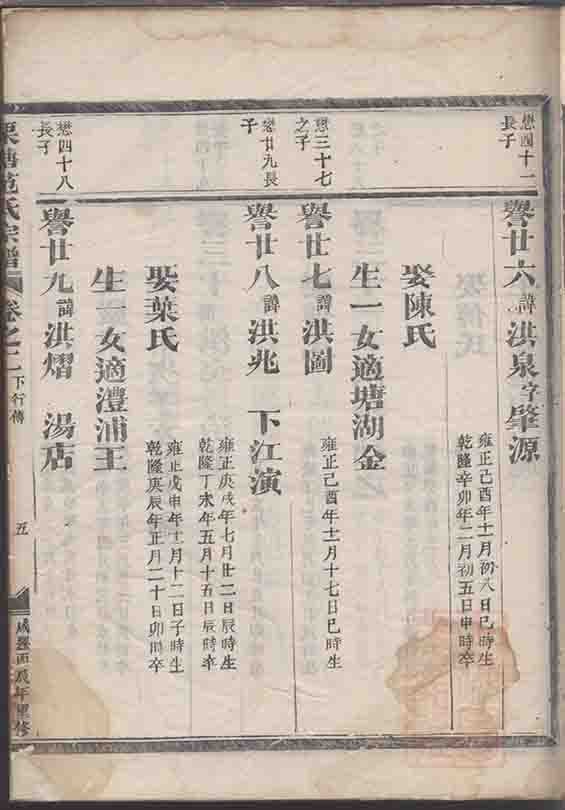 懋四十一長子
譽廿六諱洪泉字肇源
雍正己酉年十一月初八日巳時生
乾隆辛卯年二月初五日申時卒
娶陳氏
生一女適塘湖金
懋三十七之子
譽廿七諱洪圖
雍正己酉年十一月十七日巳時生
懋廿九長子
譽廿八諱洪兆 下江演
雍正庚戌年七月廿二日辰時生
乾隆丁未年五月十五日辰時卒
娶葉氏
雍正戊申年十一月十二日子時生
乾隆庚辰年正月二十日卯時卒
生一女適澧浦王
懋四十八長子
譽廿九諱洪熠 湯店
塘范氏宗譜 卷之二 下行傳 五
咸豐丙辰年重修